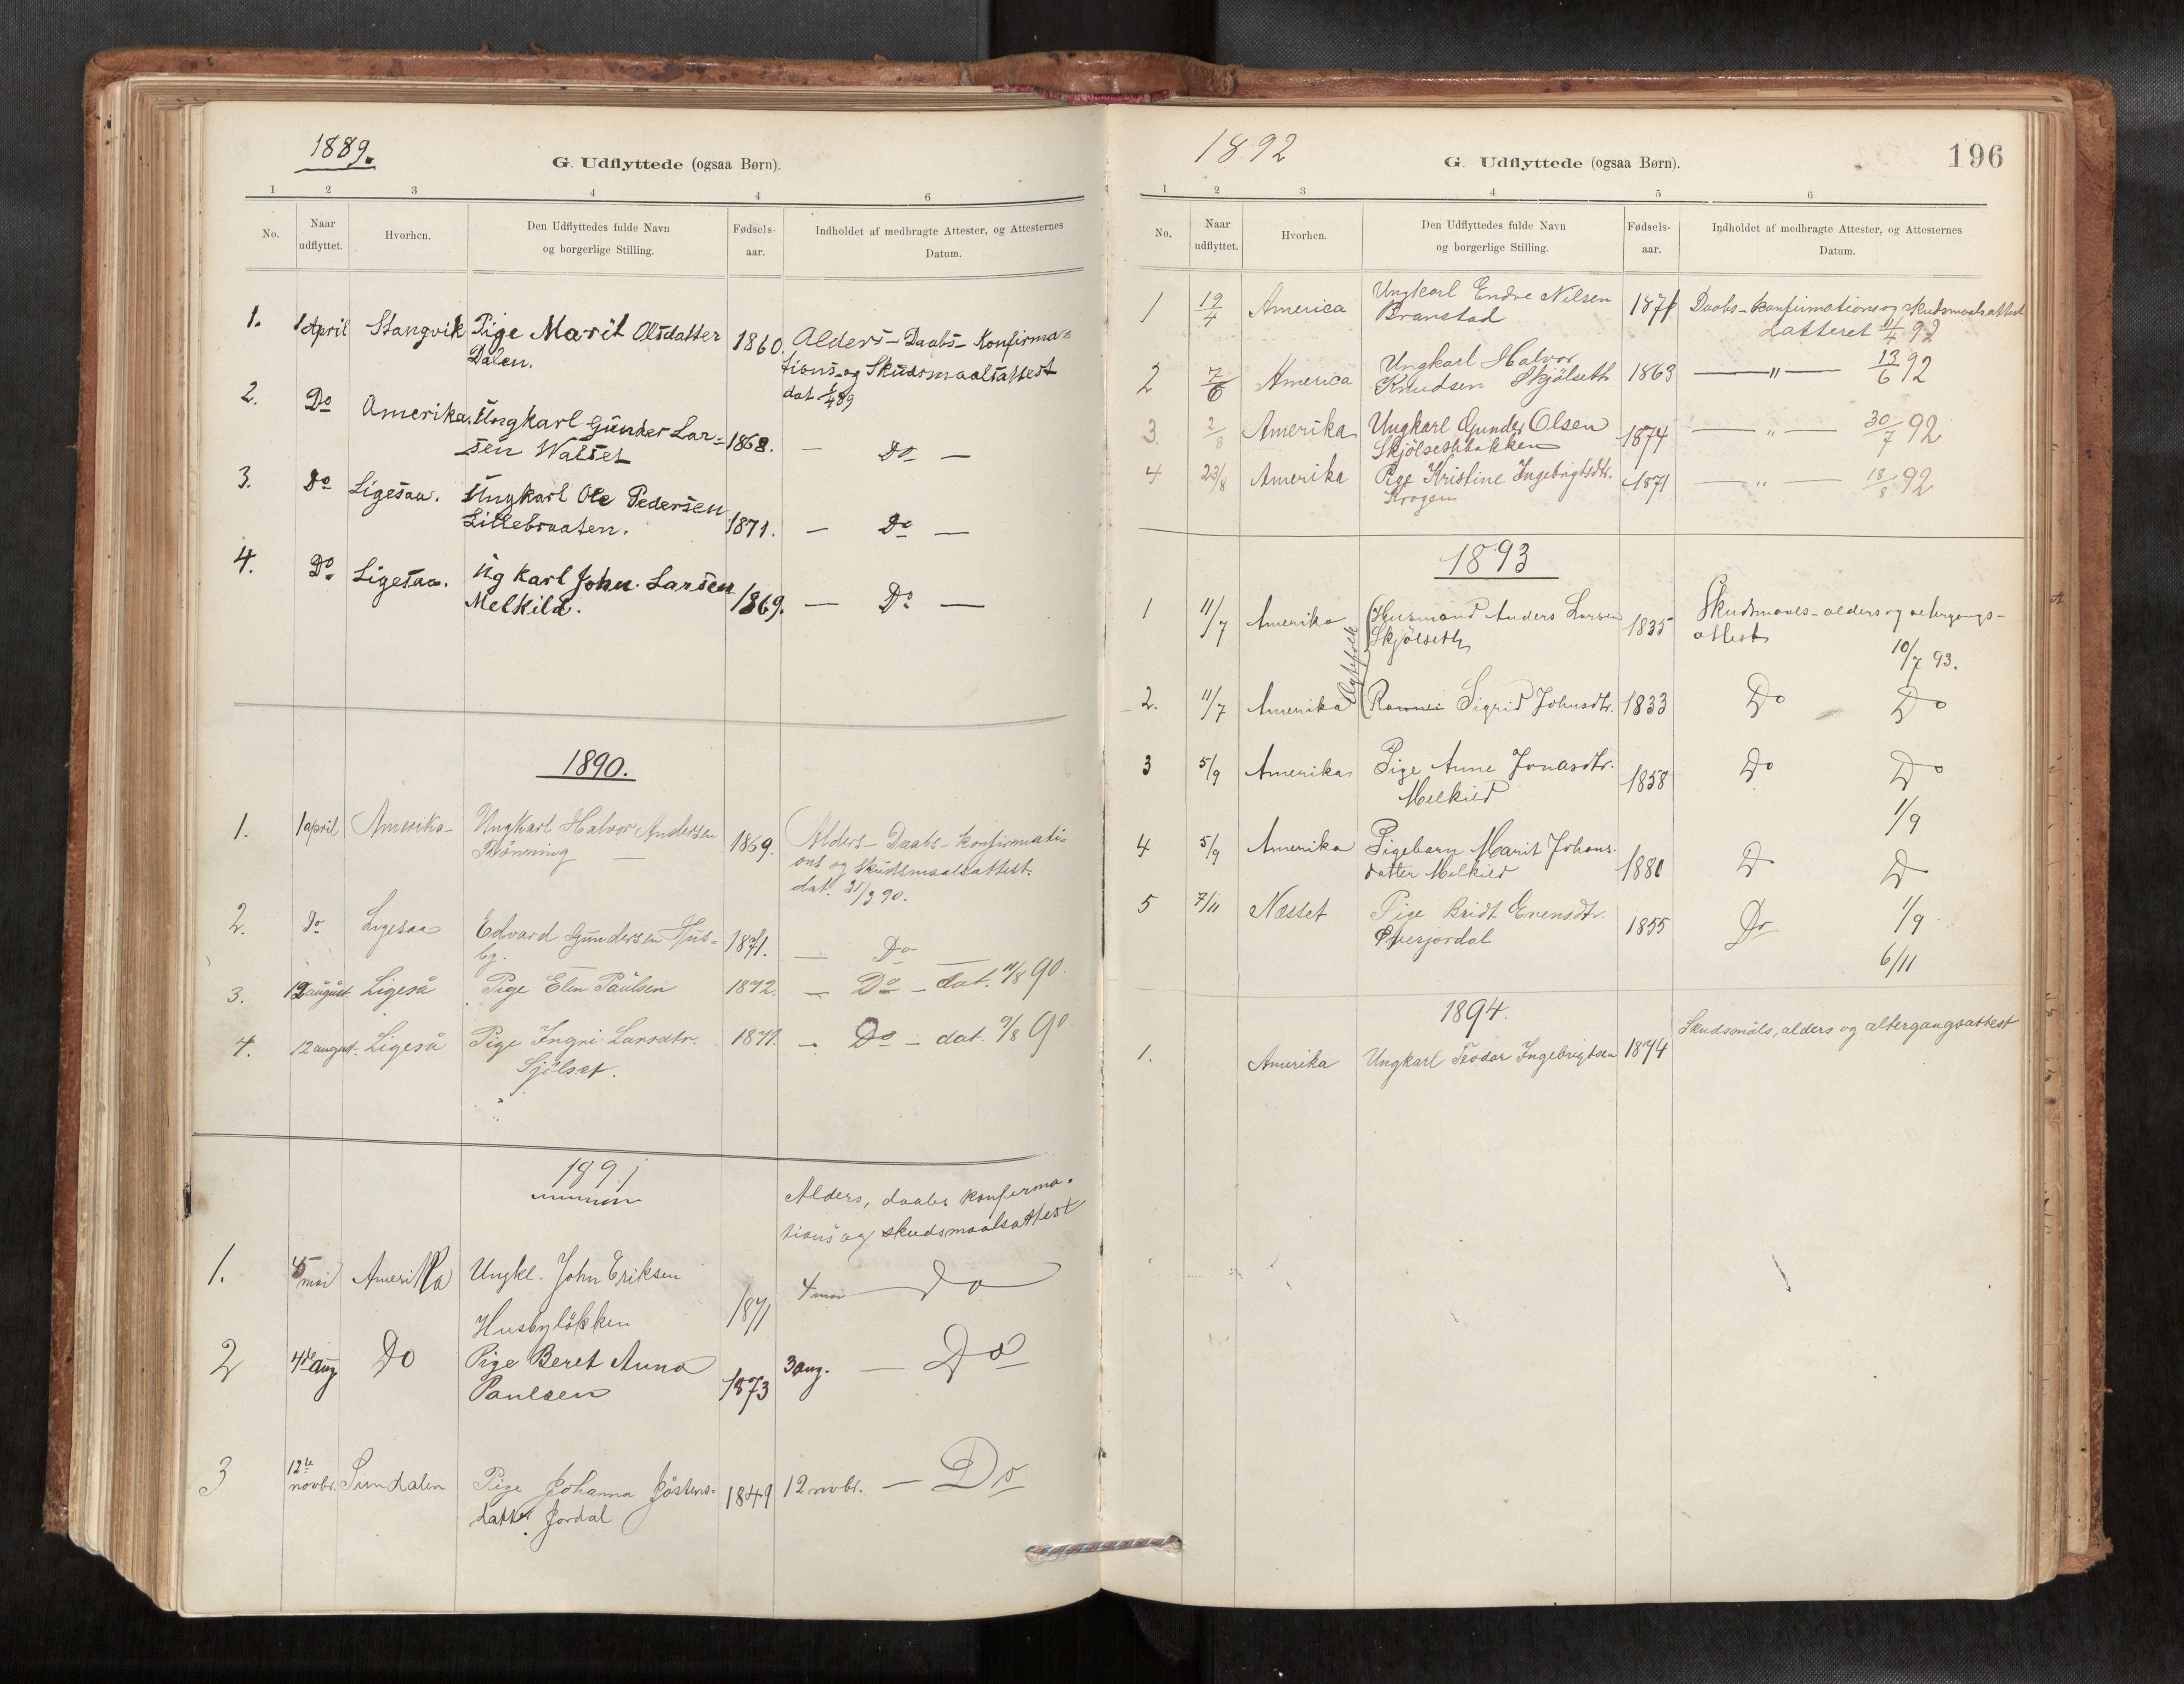 1889.
G. Udflyttede (ogsaa Børn).
1 2 3 4 4 6
No. Naar udflyttet. Hvorhen. Den Udflyttedes fulde Navn og borgerlige Stilling. Fødsels-aar. Indholdet af medbragte Attester, og Attesternes Datum.
1. 1 April Stangvik Pige Marit Olsdatter 1860. Alders- Daabs- Konfirma=
Dalen. tions- og Skudsmaalsattest
dat 1/4 89
2. Do Amerika. Ungkarl Gunder Lar= 1868. — Do —
sen
3. Do Ligesaa. Ungkarl Ole Pedersen
Lillebraaten. 1871. — Do —
4. Do Ligesaa. Ug karl John. Larsen
Melkild. 1869. — Do —
1890.
1. 1 april Amerika- Ungkarl Halvor Andersen 1869. Alders- Daabs- konfirmati-
Rönning — ons og Skudsmaalsattest.
dat. 31/3 90.
2. Do Ligesaa Edvard Gundersen Hus- 1871. — Do —
by.
3. 12 august. Ligeså Pige Elen Paulsen 1872. — Do — dat. 11/8 90.
4. 12 august. Ligeså Pige Ingri Larsdtr. 1871. — Do — dat. 9/8 90
Sjölset.
1891
Alders, daabs konfirma-
tions og skudsmaalsattest
1. 5 mai Amerika Ungkl. John Eriksen
Husbylökken 1871 4 mai — Do
2 4de aug Do Pige Beret Anna
Paulsen 1873 3 aug. — Do
3 12te novbr. Sundalen Pige Johanna Jöstens- 1849 12 novbr. — Do
datter Jordal
1892
G. Udflyttede (ogsaa Børn).
196
1 2 3 4 5 6
No. Naar udflyttet. Hvorhen. Den Udflyttedes fulde Navn og borgerlige Stilling. Fødsels-aar. Indholdet af medbragte Attester, og Attesternes Datum.
1 19/4 America Ungkarl Endre Nilsen 1871 Daabs- konfirmations og skudsmaalsattest
Branstad datteret 11/4 92
2 7/6 America Ungkarl Halvor
Knudsen Skjölseth 1863 — " — 13/6 92
3. 2/8 Amerika Ungkarl Gunder Olsen
Skjölsethbakken 1874 — " — 30/7 92
4 23/8 Amerika Pige Kristine Ingebrigtsdtr. 1871 — " — 18/8 92
Krogen
1893
1 11/7 Amerika Husmand Anders Larsen 1835 Skudsmaals- alders og altergangs-
Skjölseth attest
10/7 93.
Ægtefolk
2. 11/7 Amerika Sigrid Johnsdtr. 1833 Do Do
3 5/9 Amerika Pige Anne Jonasdtr. 1858 Do Do
Melkild 1/9
4 5/9 Amerika Pigebarn Marit Johans- 1880 Do Do
datter Melkild 1/9
5 7/11 Næsset Pige Bridt Evensdtr. 1855 Do
Överjordal 6/11
1894.
1. Amerika Ungkarl Teodor Ingebrigtsen 1874 Skudsmåls, alders og altergangsattest